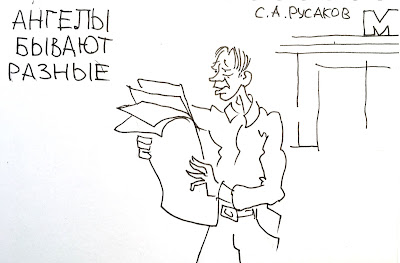 АНГЕЛЫ
БЫВАЮТ
РАЗНЫЕ
С.А.РУСАКОВ
М